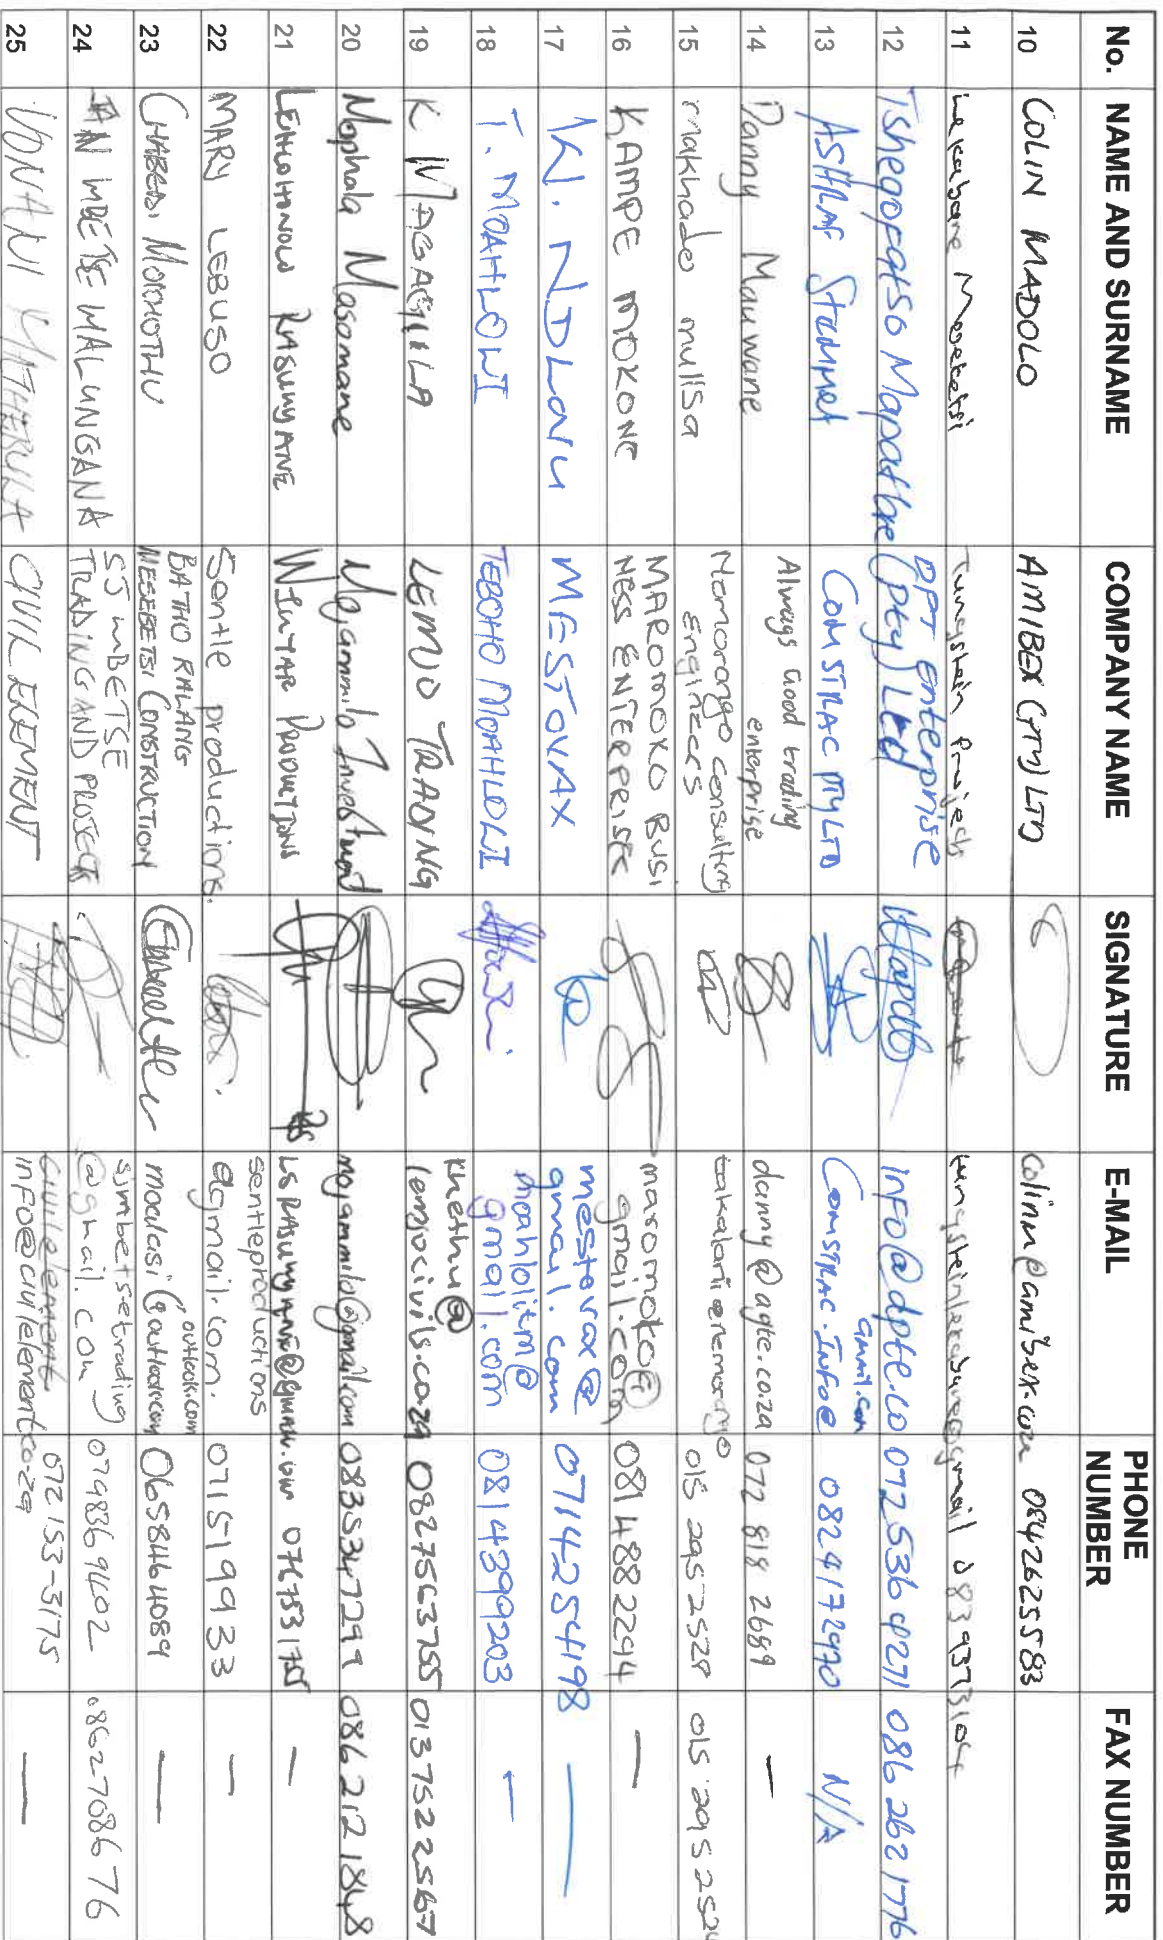 No. NAME AND SURNAME COMPANY NAME SIGNATURE E-MAIL PHONE NUMBER FAX NUMBER
10 COLIN MADOLO AMIBEX (PTY) LTD colinm@amibex.co.za 0842625583
11 Lekabane Tungstein Projects 0839373104
12 Tshegofatso DPT Enterprise (Pty) Ltd INFO@dpte.co 072 536 4271 086 262 1776
13 ASHRAF COMSTRAC PTY LTD COMSTRAC.INFO@ gmail.com 0824172970 N/A
14 Danny Mauwane Always Good trading enterprise danny@agte.co.za 072 818 2689 —
15 makhado mullsa Nemorango consulting Engineers takalani@nemorango 015 295 2528 015 295 2524
16 KAMPE MOKONE MAROMOKO BUSI NESS ENTERPRISES maromoko@ gmail.com 0814882294 —
17 N. NDLOVU MESTOVAX mestovax@ gmail.com 0714254198 —
18 T. MOAHLOLI TEBOHO MOAHLOLI moahlolitm@ gmail.com 0814399203 —
19 K MAGAGULA LEMJO TRADING khethu@ lemjocivils.co.za 0827563755 0137522567
20 Mophala Masomane Mojammilo Investment mojammilo@gmail.com 0835347299 086 212 1848
21 LEHLOHONOLO RASUNYANE WINTAP PRODUCTIONS LSRASUNYANE@gmail.com 0767531755 —
22 MARY LEBUSO Sentle productions. sentleproductions @gmail.com. 0715199933 —
23 CHABEDI MOKHOTHU BATHO RALANG MESEBETSI CONSTRUCTION moalasi@outlook.com outlook.com 0658464089 —
24 MBETSE MALUNGANA SJ MBETSE TRADING AND PROJECTS sjmbetsetrading @gmail.com 0798369402 0862708676
25 VONANI MATHEBULA CIVIL ELEMENT Civilelement info@civilelement.co.za 072 153-3175 —